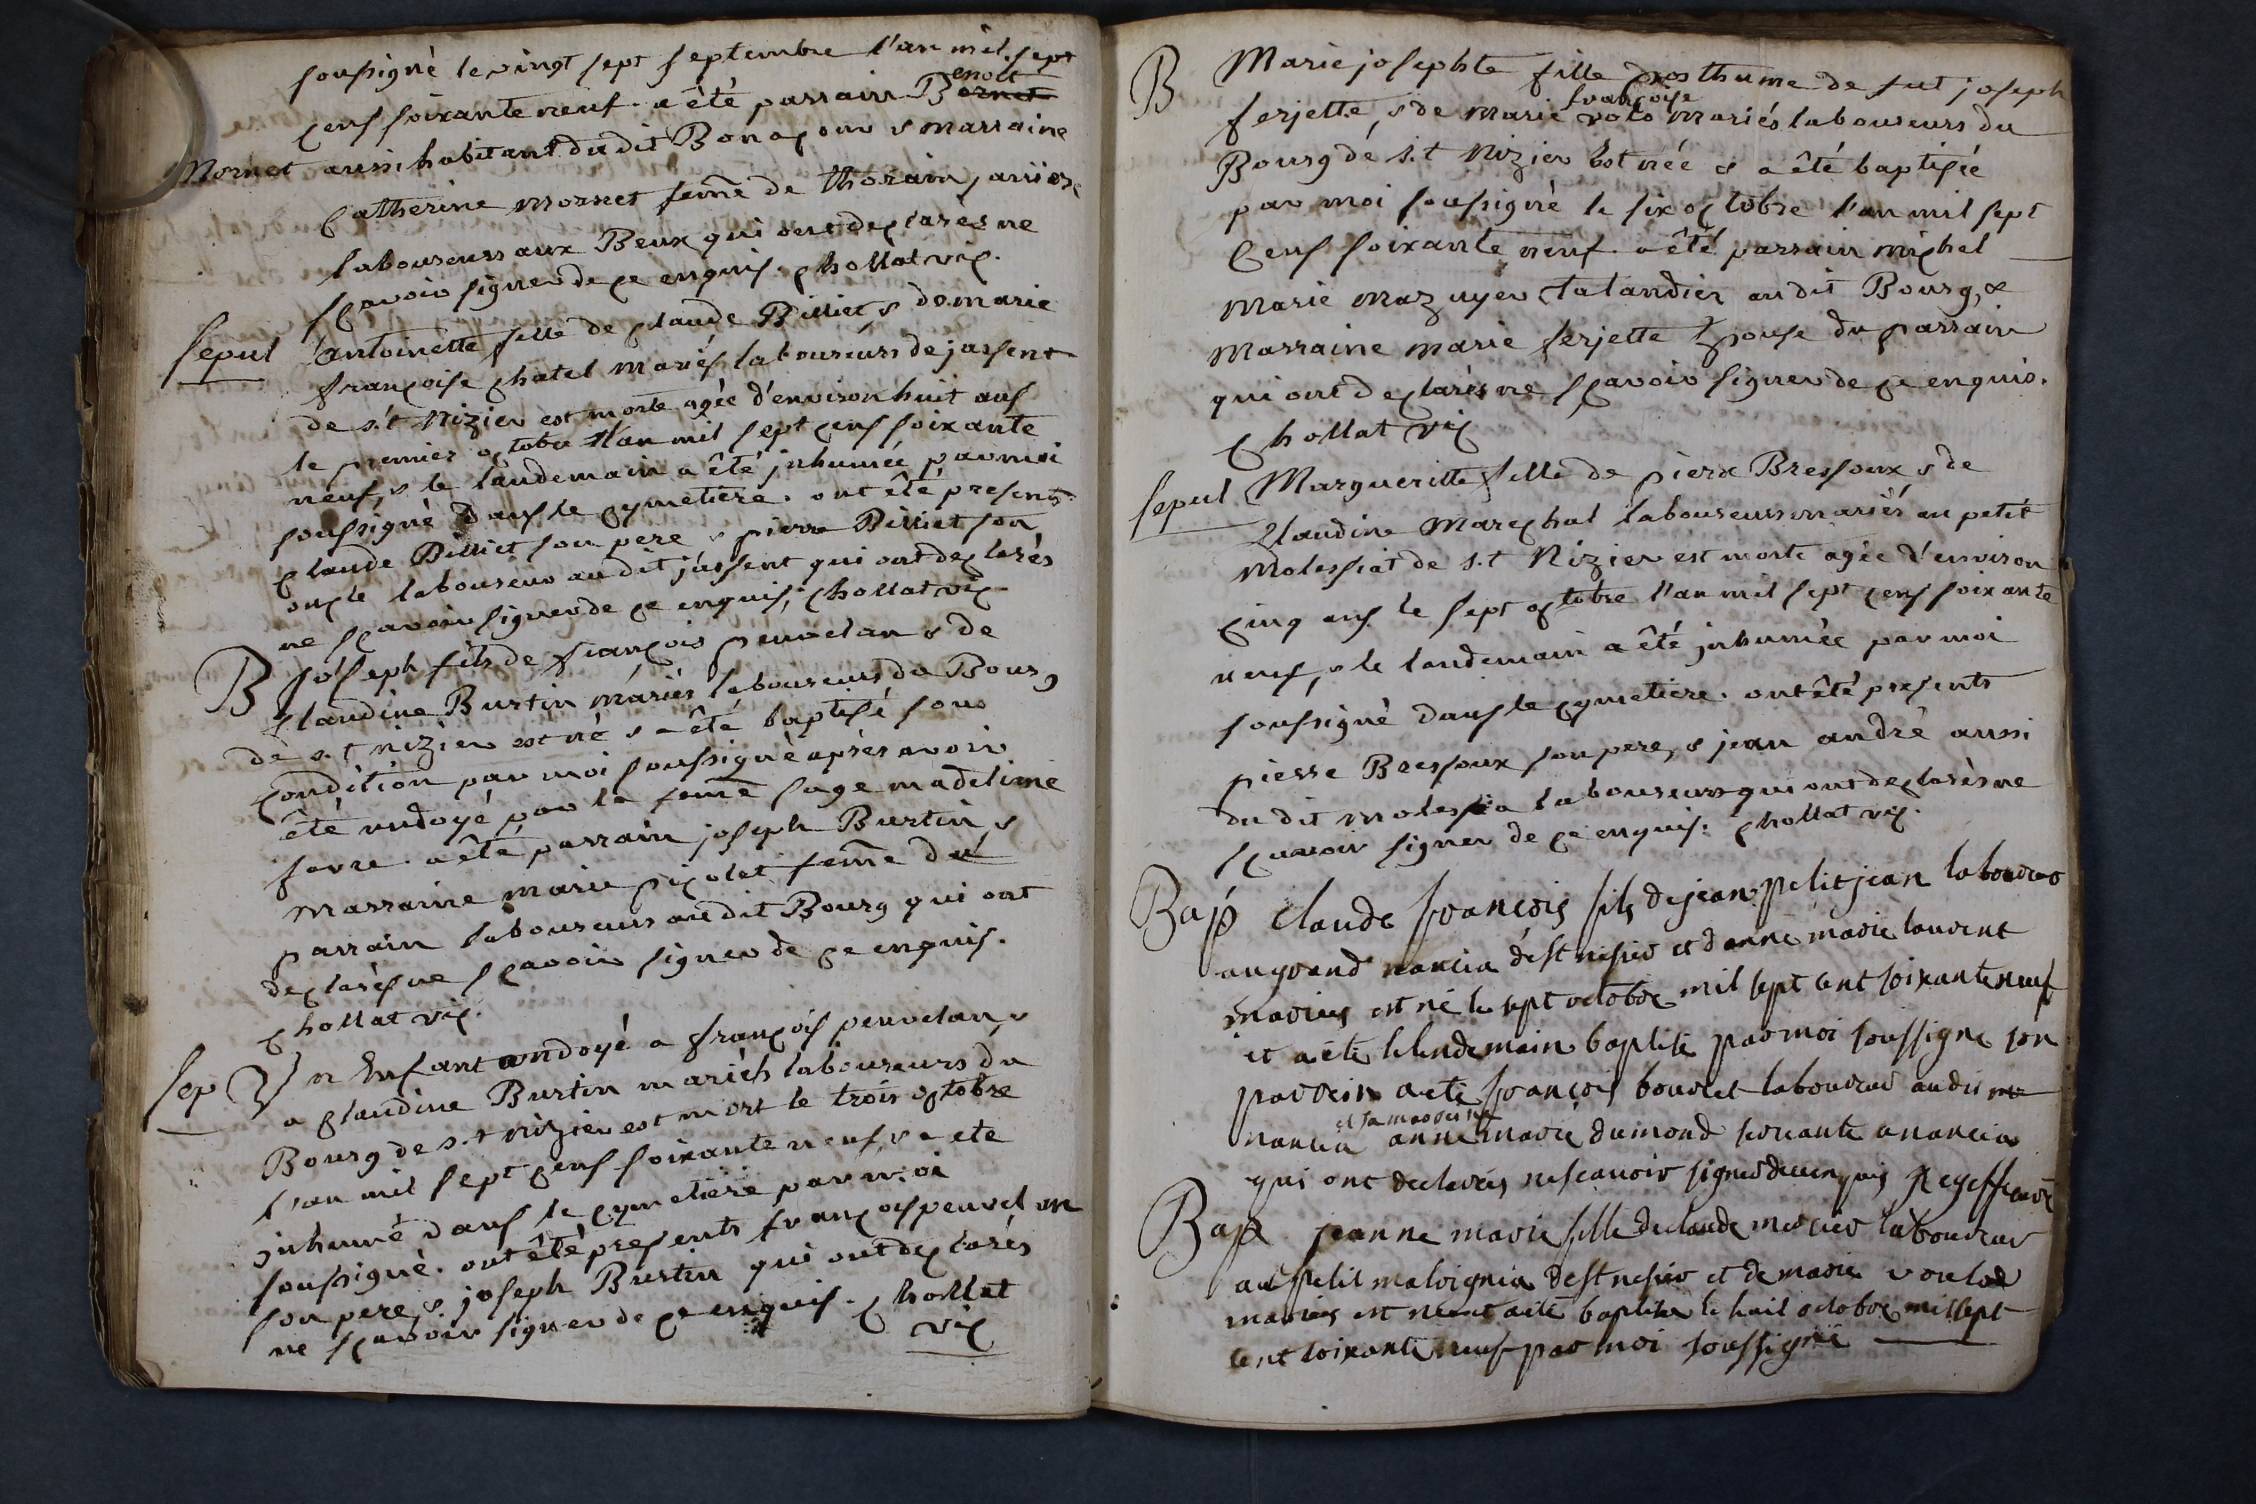 soussigné le vingt sept septembre l'an mil sept
cens soixante neuf. a êté parrain Benoit
Mornet aussi habitant du dit Bonacour & marraine
Catherine mornet feme de thorain, arrier,
laboureurs aux Beux qui ont declarés ne
sçavoir signer de ce enquis. chollat vic.
sepul antoinette fille de claude Billiet, & de marie
françoise chatel mariés laboureurs de jassent
de s.t Nizier est morte agée d'environ huit ans
le premier octobre l'an mil sept cens soixante
neuf, & le landemain a êté inhumée par moi
soussigné dans le cymetiere. ont êté presents
claude Billiet son pere & pierre Billiet son
oncle laboureur au dit jassent qui ont declarés
ne sçavoir signer de ce enquis, chollat vic.
B joseph fils de françois peuvelan & de
claudine Burtin mariés laboureurs du Bourg
de s.t nizier est né & a êté baptisé sous
condition par moi soussigné après avoir
êté undoyé par la feme sage madelaine
favre. a êté parrain joseph Burtin, &
marraine marie picolet feme du
parrain laboureurs au dit Bourg qui ont
declarés ne sçavoir signer de ce enquis.
chollat vic.
sep Un Enfant ondoyé a françois peuvelan, &
a claudine Burtin mariés laboureurs du
Bourg de s.t nizier est mort le trois octobre
l'an mil sept cens soixante neuf, & a ete
inhumé dans le cymetiere par moi
soussigné. ont êté presents françois peuvelan
son pere, & joseph Burtin qui ont declarés
ne sçavoir signer de ce enquis. chollat
vic
B Marie josephte fille posthume de fut joseph
ferjette, & de marie françoise volo mariés laboureurs du
Bourg de s.t Nizier Est née & a êté baptisée
par moi soussigné le six octobre l'an mil sept
Cens soixante neuf. a êté parrain michel
Marie mazuyer talandier au dit Bourg, &
Marraine marie ferjette Epouse du parrain
qui ont declarés ne sçavoir signer de ce enquis.
Chollat vic
sepul Margueritte fille de pierre Bressoux, & de
Claudine Marechal laboureurs mariés au petit
molessiat de s.t Nizier est morte agée d'environ
cinq ans le sept octobre l'an mil sept cens soixante
neuf, & le landemain a êté inhumée par moi
soussigné dans le cymetiere. ont êté presents
pierre Bressoux son pere, & jean andré aussi
du dit molessia laboureurs qui ont declarés ne
sçavoir signer de ce enquis. chollat vic.
Bap claude françois fils de jean petitjean laboureur
au grand nancia de st nisier et danne marie laurent
mariés est né le sept octobre mil sept cent soixante neuf
et a été le lendemain baptisé par moi soussigné son
parrein a eté françois bouvet laboureur audit
nancia et sa marreine anne marie dumond servante a nancia
qui ont declarés ne scavoir signer de ce enquis
Bap jeanne marie fille de claude mercier laboureur
au petit malvignia de st nesier et de marie
mariés est née et a eté baptisée le huit octobre mil sept
cent soixante neuf par moi soussigné